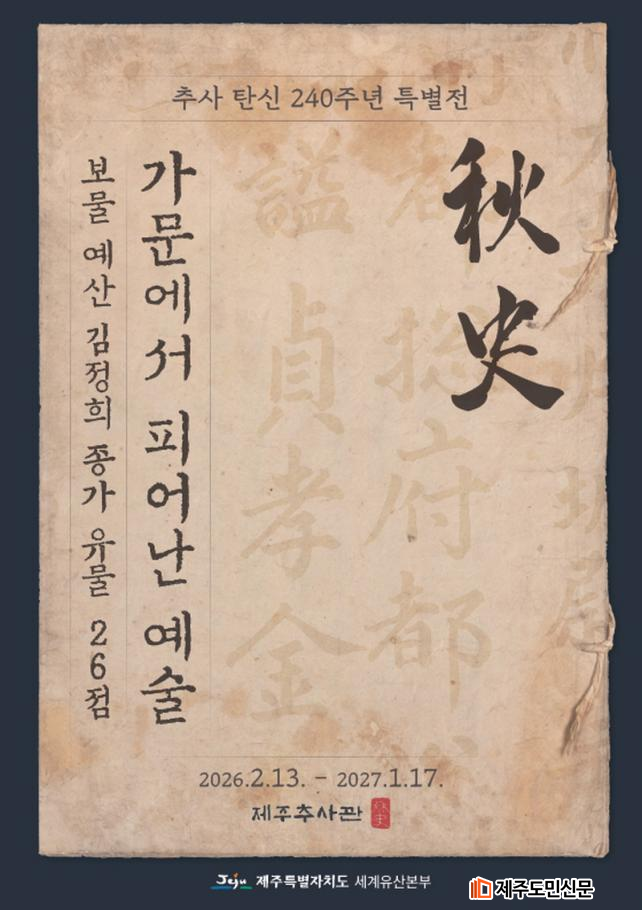 추사 탄신 240주년 특별전
秋史
가문에서 피어난 예술
보물 예산 김정희 종가 유물 26점
謚貞孝金
府都
2026.2.13. - 2027.1.17.
제주추사관
Jeju 제주특별자치도 세계유산본부
제주도민신문